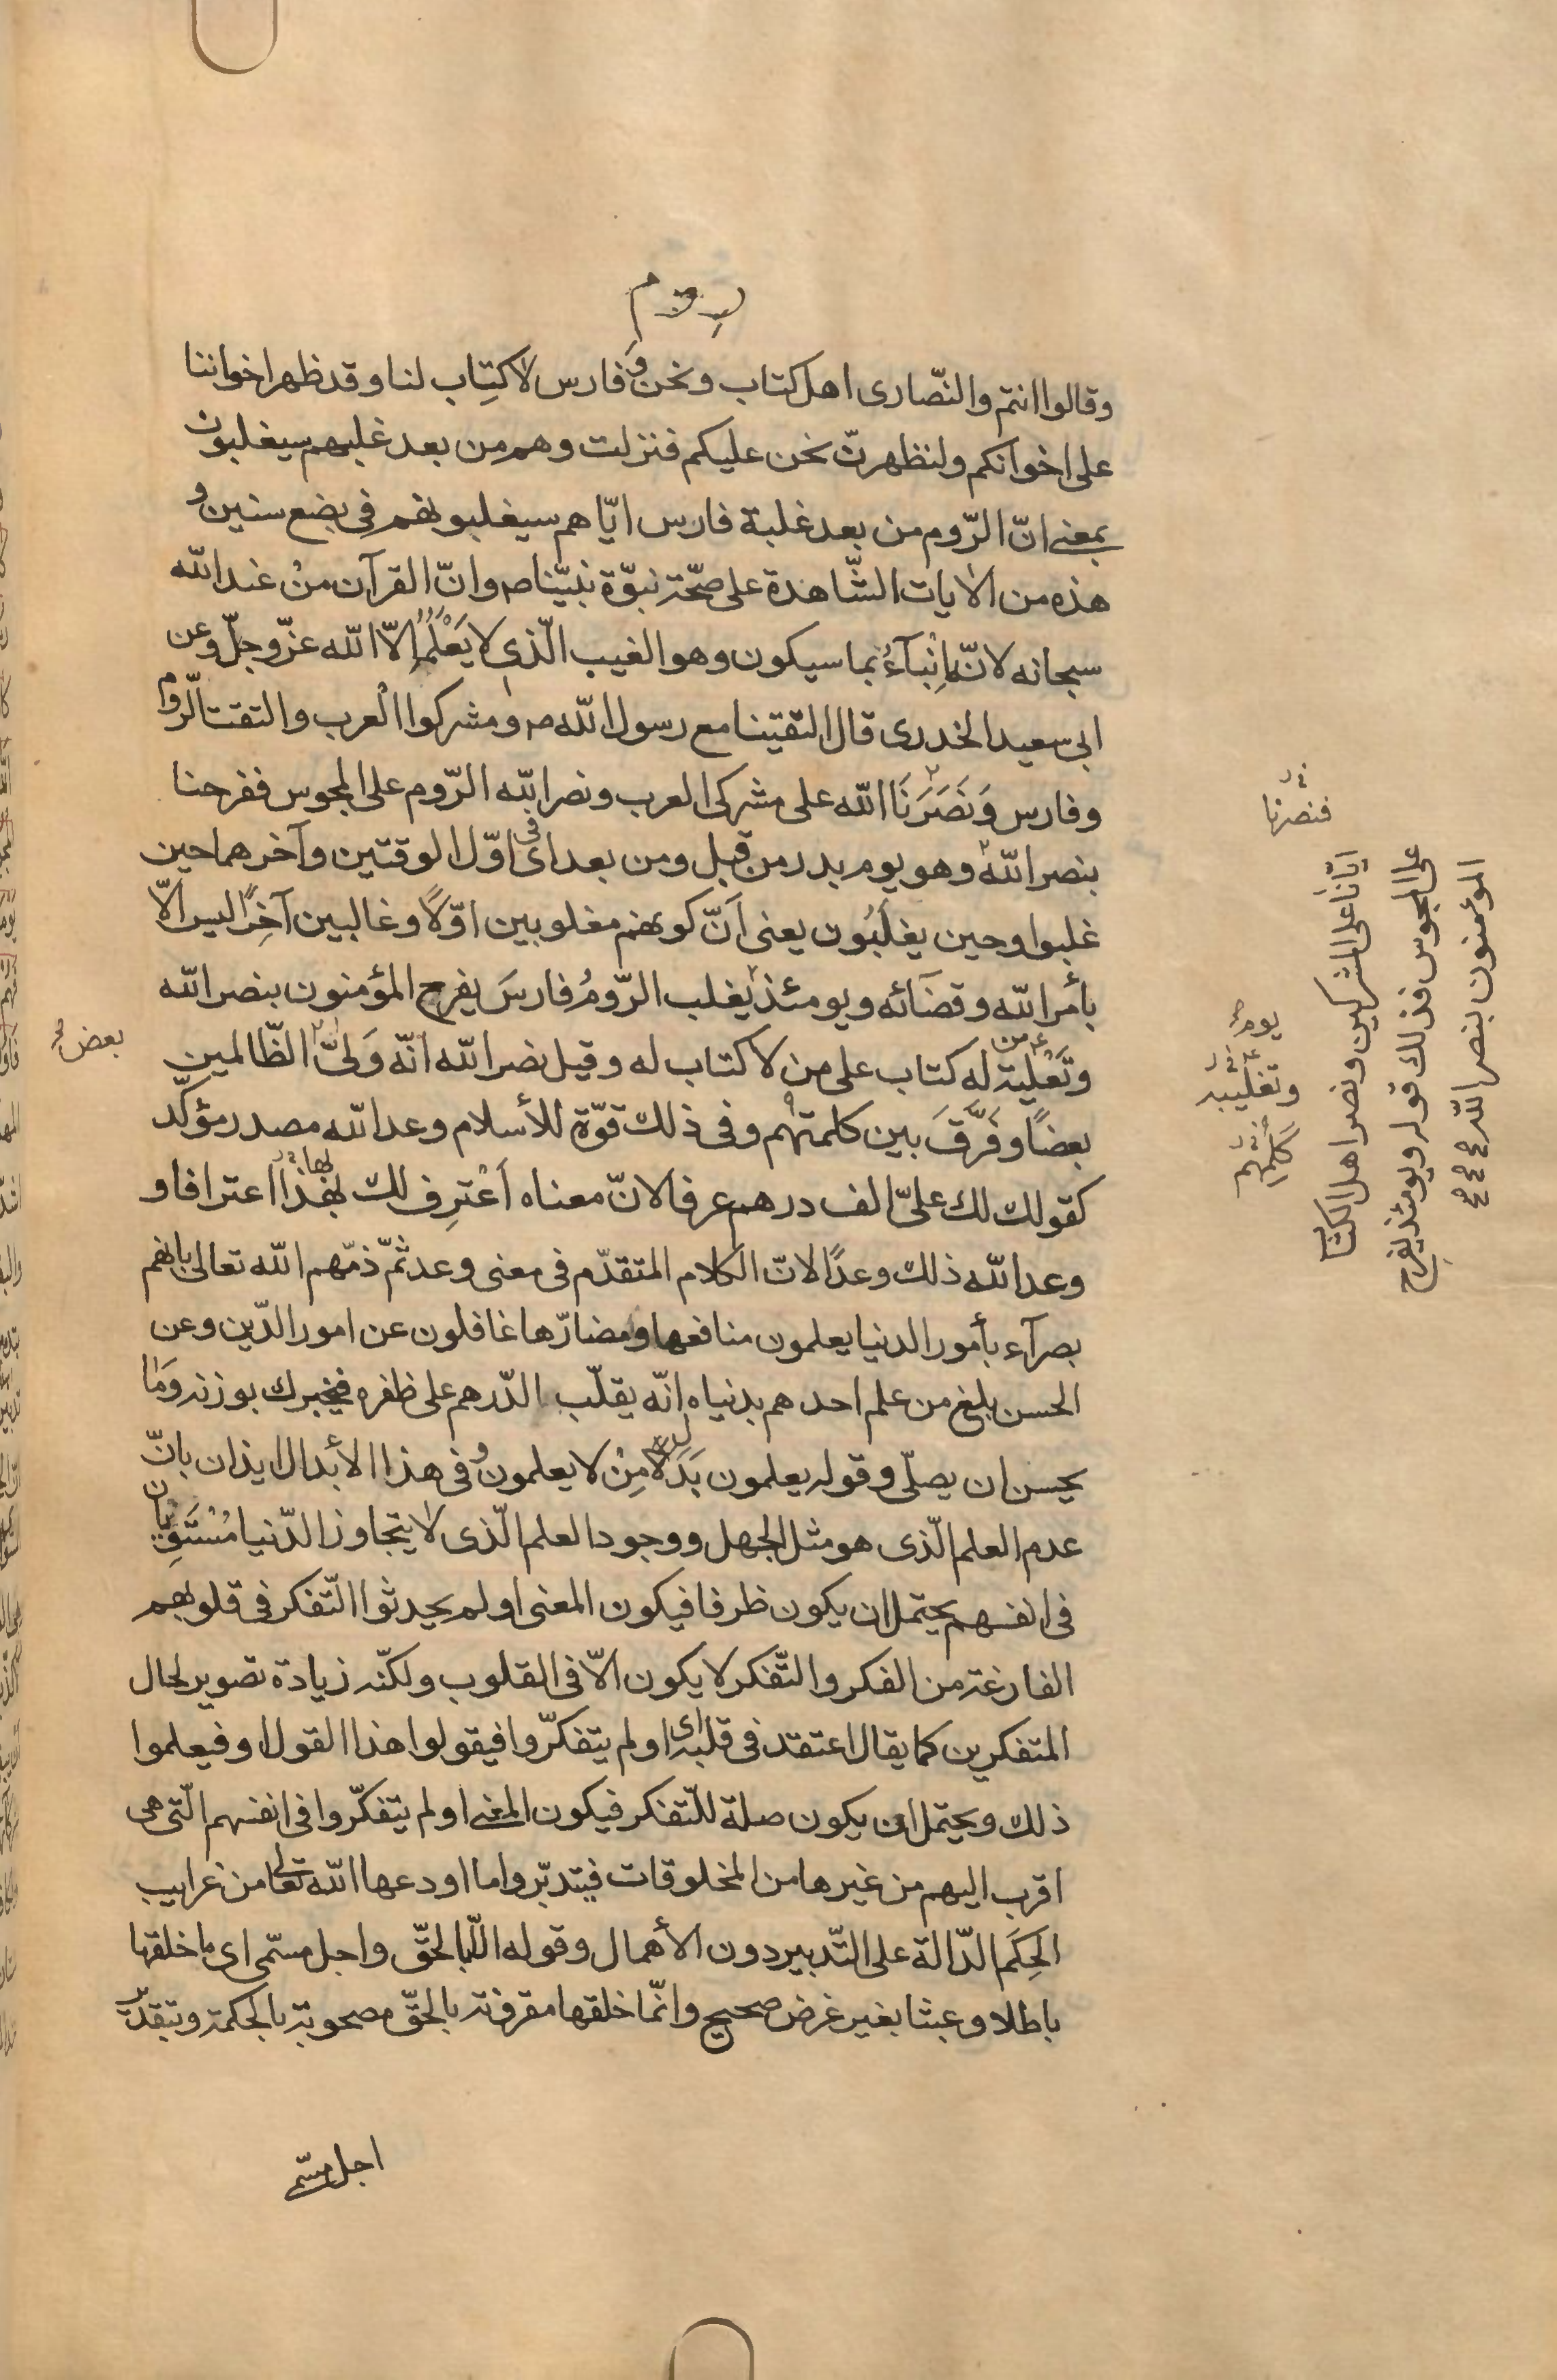 وقالوا انتم والنّصارى اهل كتاب ونحن وفارس لا كتاب لنا وقد ظهر اخواننا
على اخوانكم ولنظهرنّ نحن عليكم فنزلت وهم من بعد غلبهم سيغلبون
بمعنى انّ الرّوم من بعد غلبة فارس ايّاهم سيغلبونهم فى بضع سنين و
هذه من الايات الشّاهدة على صحّة نبوّة نبيّنا ص وانّ القرآن من عند الله
سبحانه لانّها انبآء بما سيكون وهو الغيب الّذى لا يعلمه الاّ الله عزّ وجلّ وعن
ابى سعيد الخدرى قال التقينا مع رسول الله ص ومشركوا العرب والتقت الرّوم
وفارس وَنَصَرَنَا الله على مشركى العرب ونصر الله الرّوم على المجوس ففرحنا
بنصر الله وهو يوم بدر من قبل ومن بعد اى فى اوّل الوقتين وآخرهما حين
غلبوا وحين يغلبون يعنى انّ كونهم مغلوبين اوّلاً وغالبين آخِرًا ليس الاّ
بأمر الله وقضآئه ويومئذ يغلب الرّومُ فارسَ يفرح المؤمنون بنصر الله
وتغلية من له كتاب على من لا كتاب له وقيل نصر الله انّه وَلىّ الظّالمين
بعضًا وفَرَّقَ بين كلمتهم وفى ذلك قوّة للأسلام وعد الله مصدر مؤكّد
كقولك لك علىّ الف درهم عرفا لانّ معناه اَعْترِف لك بهذا اعترافا و
وعد الله ذلك وعدًا لانّ الكلام المتقدّم فى معنى وعد ثمّ ذمّهم الله تعالى بانهم
بصرآء بأمور الدنيا يعلمون منافعها ومضارّها غافلون عن امور الدّين وعن
الحسن بلغ من علم احدهم بدنياه انّه يقلّب الدّرهم على ظفره فيخبرك بوزنه وَما
يحسن ان يصلّى وقوله يعلمون بَدَلا مِنْ لا يعلمون وفى هذا الأبدال ايذان بانّ
عدم العلم الّذى هو مثل الجهل ووجود العلم الّذى لا يتجاوز الدّنيا مُسْتَوِيان
فى انفسهم يحتمل ان يكون ظرفا فيكون المعنى اولم يحدثوا التّفكر فى قلوبهم
الفارغة من الفكر والتّفكر لا يكون الاّ فى القلوب ولكنّه زيادة تصوير لحال
المتفكرين كما يقال اعتقد فى قلبه اى اولم يتفكّروا فيقولوا هذا القول او فيعلموا
ذلك ويحتمل ان يكون صلة للتّفكر فيكون المعنى اولم يتفكّروا فى انفسهم الّتى هى
اقرب اليهم من غيرها من المخلوقات فيتدبّروا ما اودعها الله تعالى من غرايب
الحِكَم الدّالة على التّدبير دون الأهمال وقوله الاّ بالحقّ واجل مسمّى اى ما خلقها
باطلا وعبثا بغير غرض صحيح وانّما خلقها مقرونة بالحقّ مصحوبة بالحكمة وبتقدير
اجل مسمّى
فنصرنا
ايّانا على المشركين ونصر اهل الكتاب
على المجوس فذلك قوله ويومئذ يفرح
المؤمنون بنصر الله
يوم
وتغليبه
بعض